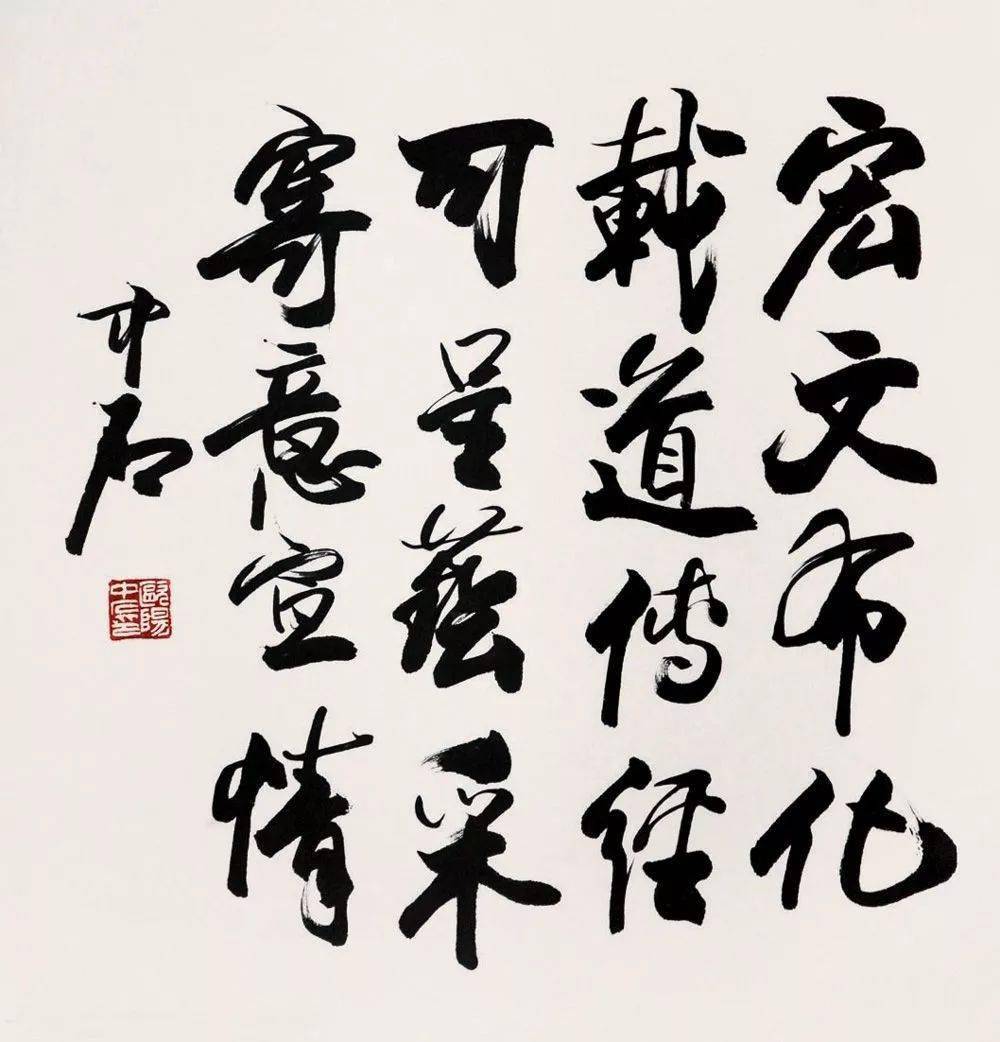 宏文布化
載道傳經
可呈藝采
寄意宣情
中石
歐陽
中石